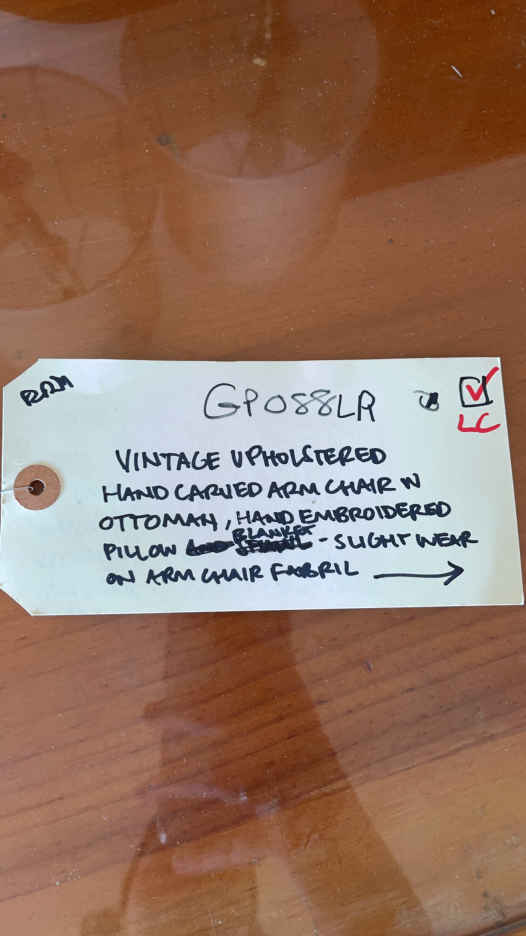 RRM
GP088LR
LC
VINTAGE UPHOLSTERED
HAND CARVED ARM CHAIR W
OTTOMAN, HAND EMBROIDERED
BLANKET
PILLOW - SLIGHT WEAR
ON ARM CHAIR FABRIC